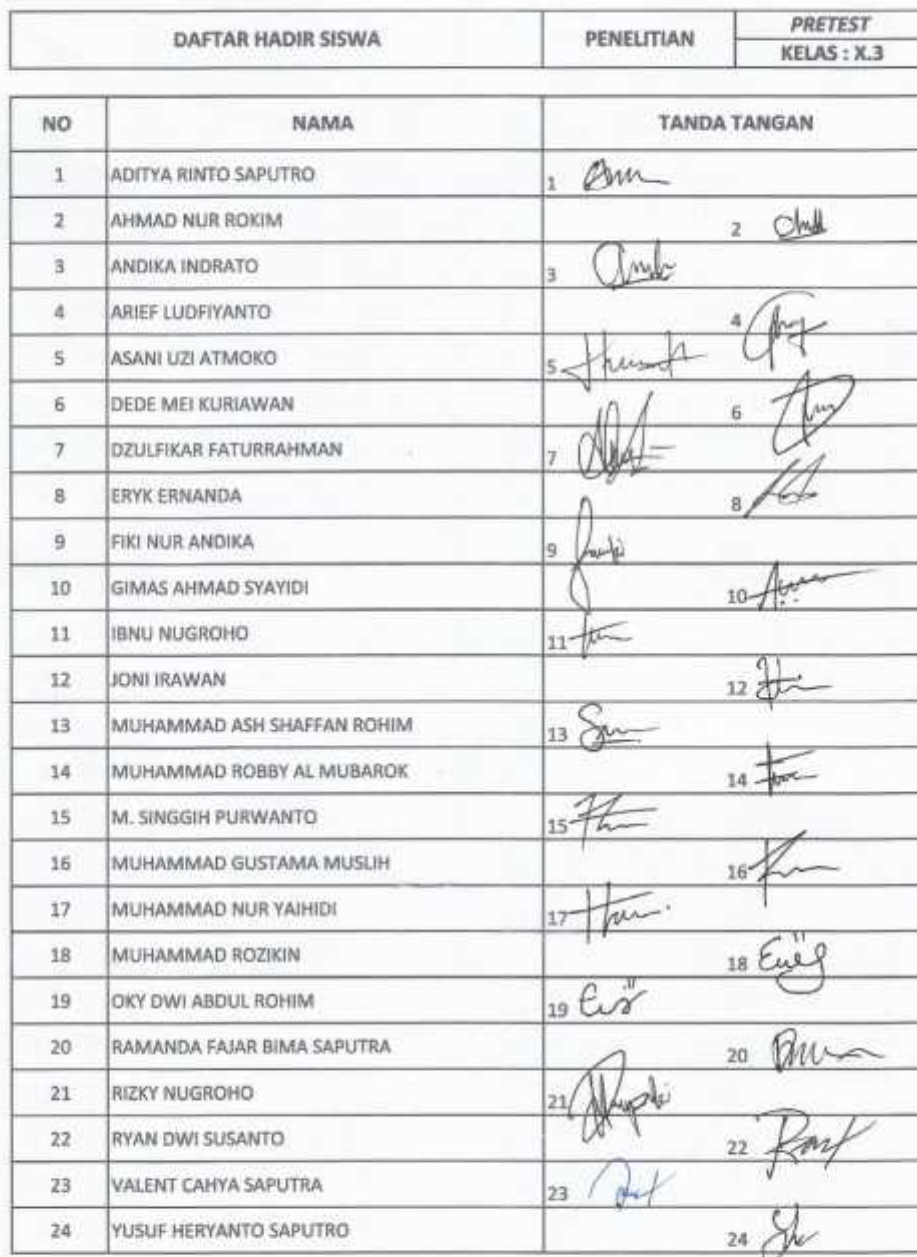 DAFTAR HADIR SISWA PENELITIAN PRETEST
KELAS : X.3
NO NAMA TANDA TANGAN
1 ADITYA RINTO SAPUTRO 1
2 AHMAD NUR ROKIM 2
3 ANDIKA INDRATO 3
4 ARIEF LUDFIYANTO 4
5 ASANI UZI ATMOKO 5
6 DEDE MEI KURIAWAN 6
7 DZULFIKAR FATURRAHMAN 7
8 ERYK ERNANDA 8
9 FIKI NUR ANDIKA 9
10 GIMAS AHMAD SYAYIDI 10
11 IBNU NUGROHO 11
12 JONI IRAWAN 12
13 MUHAMMAD ASH SHAFFAN ROHIM 13
14 MUHAMMAD ROBBY AL MUBAROK 14
15 M. SINGGIH PURWANTO 15
16 MUHAMMAD GUSTAMA MUSLIH 16
17 MUHAMMAD NUR YAIHIDI 17
18 MUHAMMAD ROZIKIN 18
19 OKY DWI ABDUL ROHIM 19
20 RAMANDA FAJAR BIMA SAPUTRA 20
21 RIZKY NUGROHO 21
22 RYAN DWI SUSANTO 22
23 VALENT CAHYA SAPUTRA 23
24 YUSUF HERYANTO SAPUTRO 24